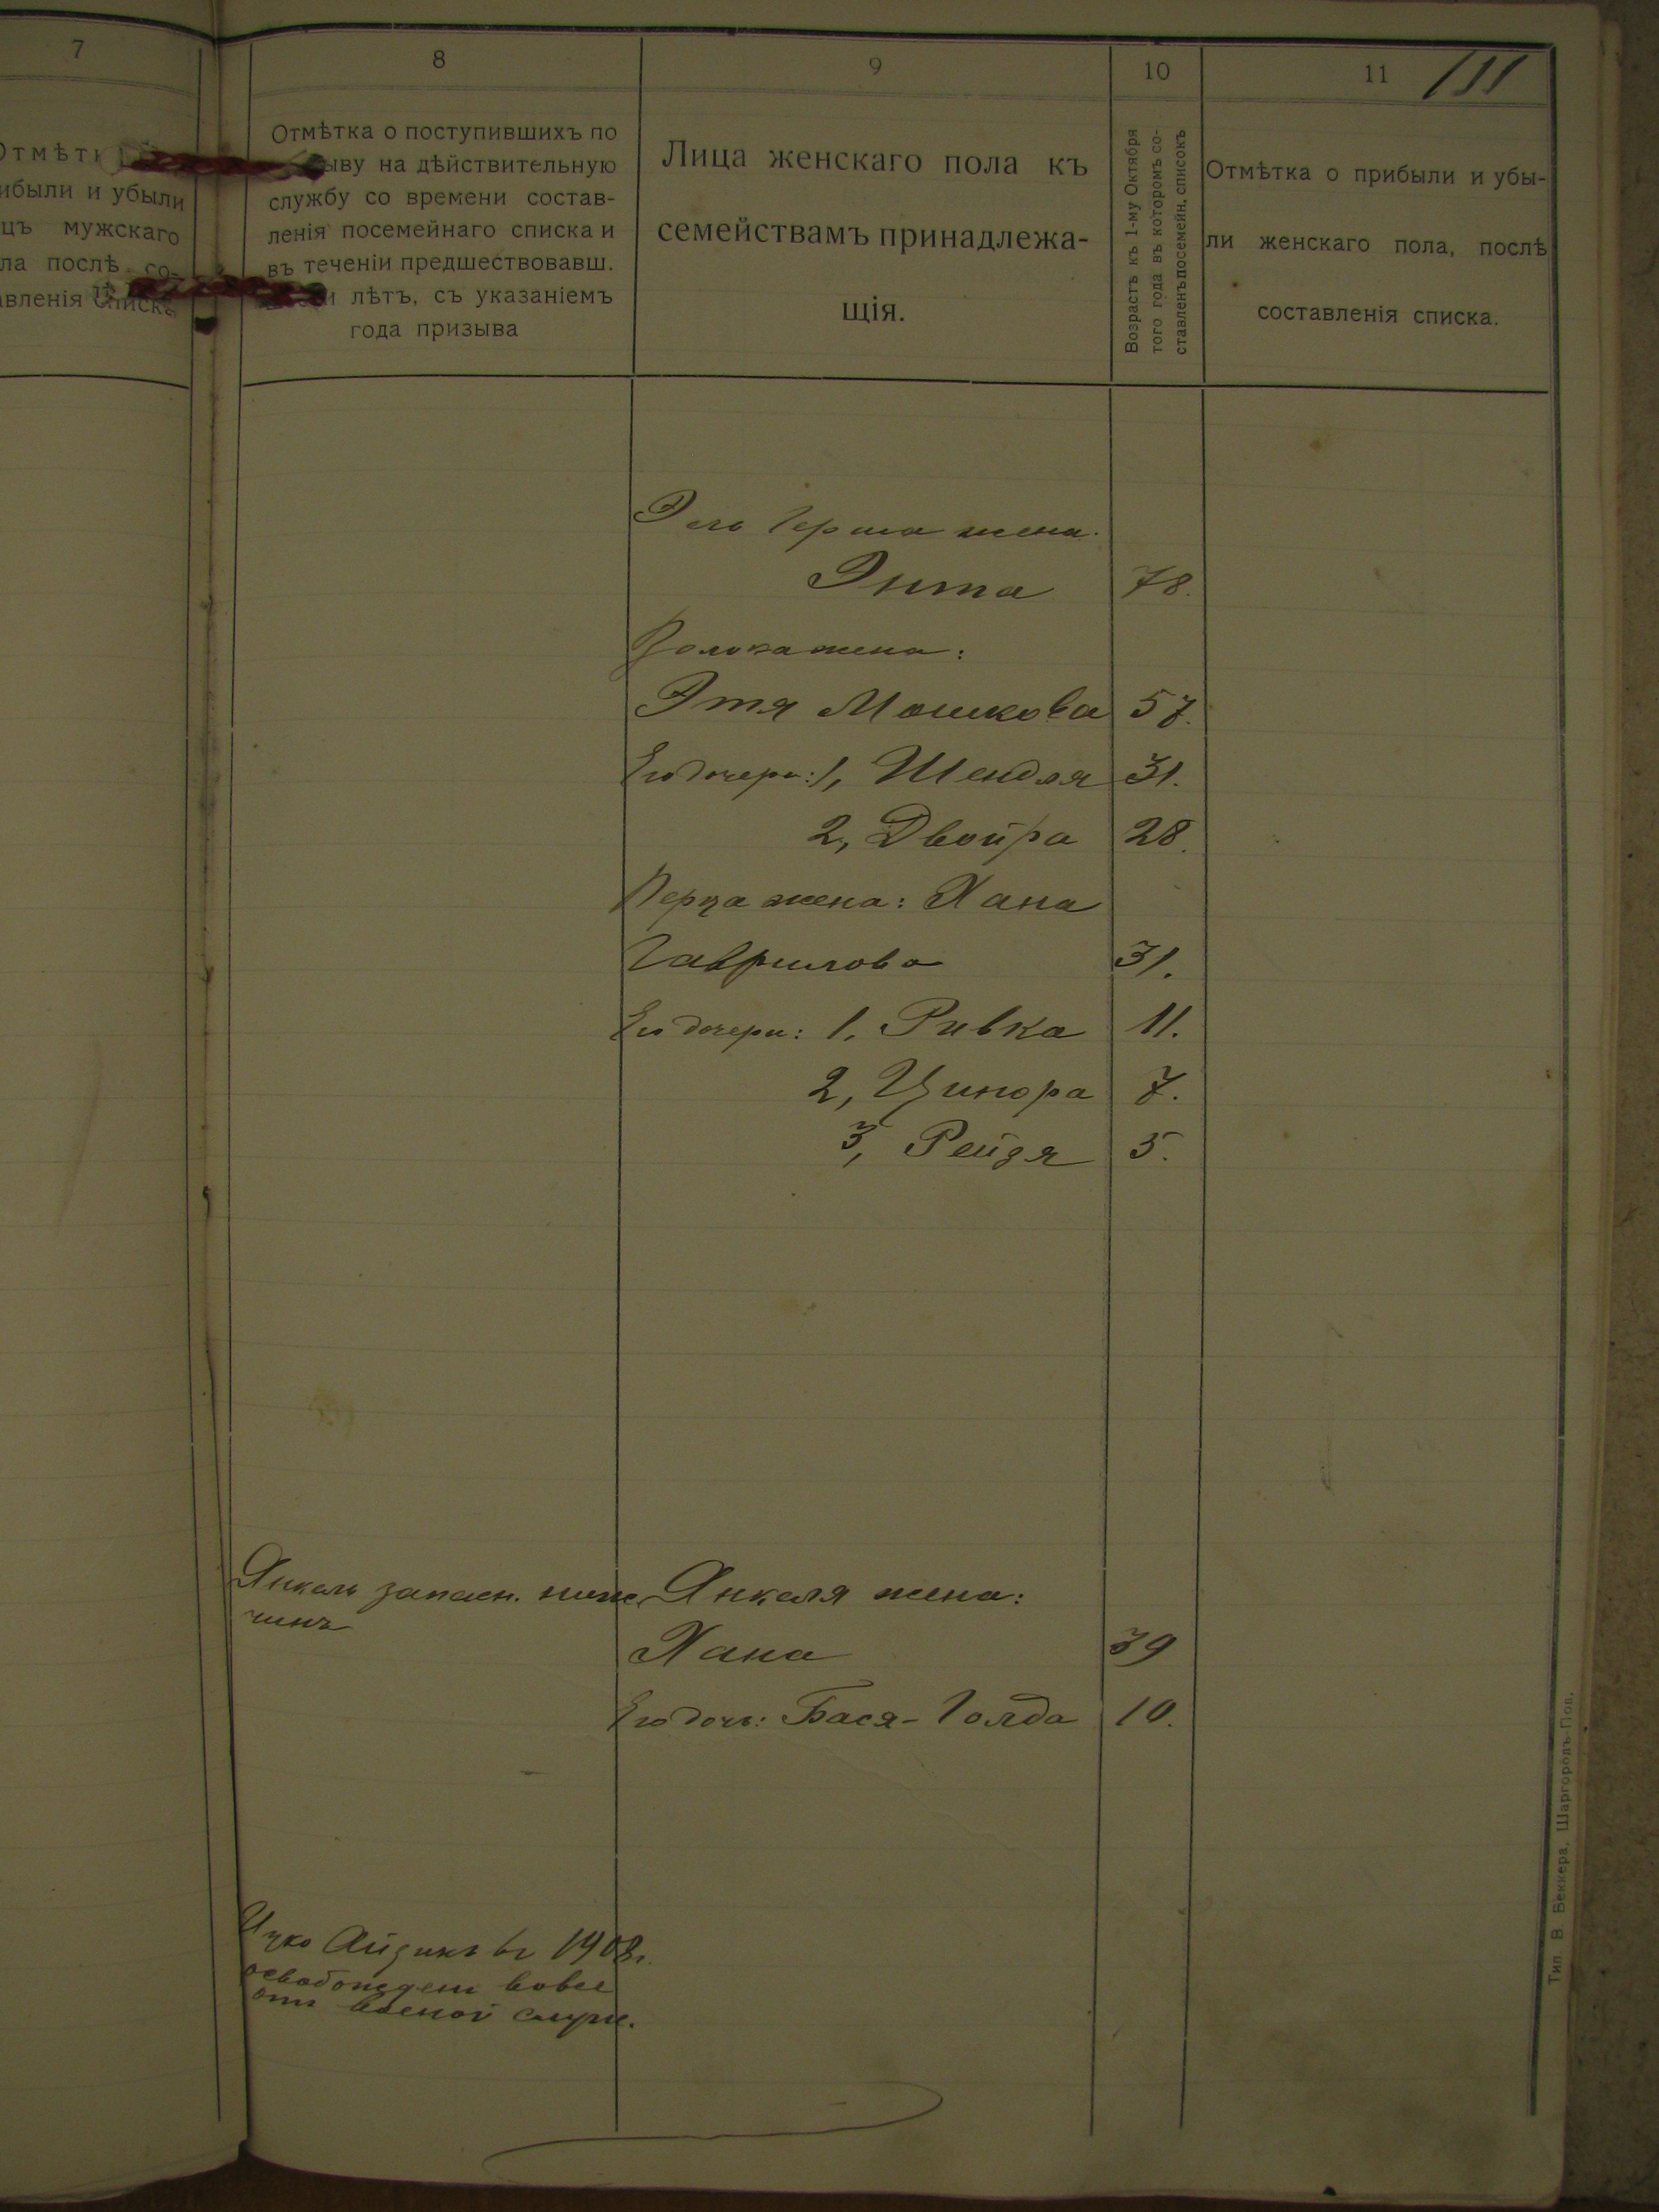 7
ибыли и убыли
цъ мужскаго
ла послѣ со-
авленія списка
8
Отмѣтка о поступившихъ по
на дѣйствительную
службу со времени состав-
ленія посемейнаго списка и
въ теченіи предшествовавш.
лѣтъ, съ указаніемъ
года призыва
9
Лица женскаго пола къ
семействамъ принадлежа-
щія.
10
Возрастъ къ 1-му Октября
того года въ которомъ со-
ставленъ посемейн. списокъ
11
111
Отмѣтка о прибыли и убы-
ли женскаго пола, послѣ
составленія списка.
Герша жена.
Энта 78.
жена:
Этя Мошкова 57.
Его дочери: 1, Шендля 31.
2, Двойра 28.
Перца жена: Хана
Гаврилова 31.
Его дочери: 1. Ривка 11.
2, Ципора 7.
3, Рейзя 5.
Янкель запасн. ниж.
чинъ
Янкеля жена:
Хана 39
Его дочь: Бася-Голда 10.
Ицко Айзикъ въ 1908 г.
освобожден вовсе
отъ военой служ.
Тип. В. Беккера, Шаргородъ-Под.